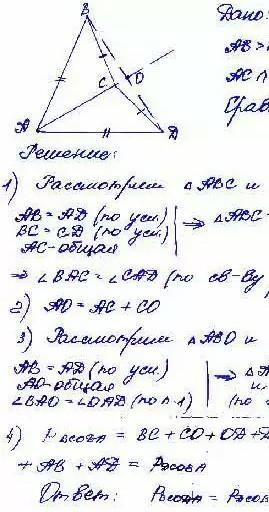 B
Дано:
AB >
C
O
AC ∩
Срав
A
D
Решение:
1) Рассмотрим △ABC и
AB = AD (по усл.)
BC = CD (по усл.)
AC - общая
⇒ △ABC =
⇒ ∠BAC = ∠CAD (по св-ву
2) AO = AC + CO
3) Рассмотрим △ABO и
AB = AD (по усл.)
AO - общая
∠BAO = ∠OAD (по п.1)
⇒ △A
(по
4) BC + CO + OD +
+ AB + AD =
Ответ: